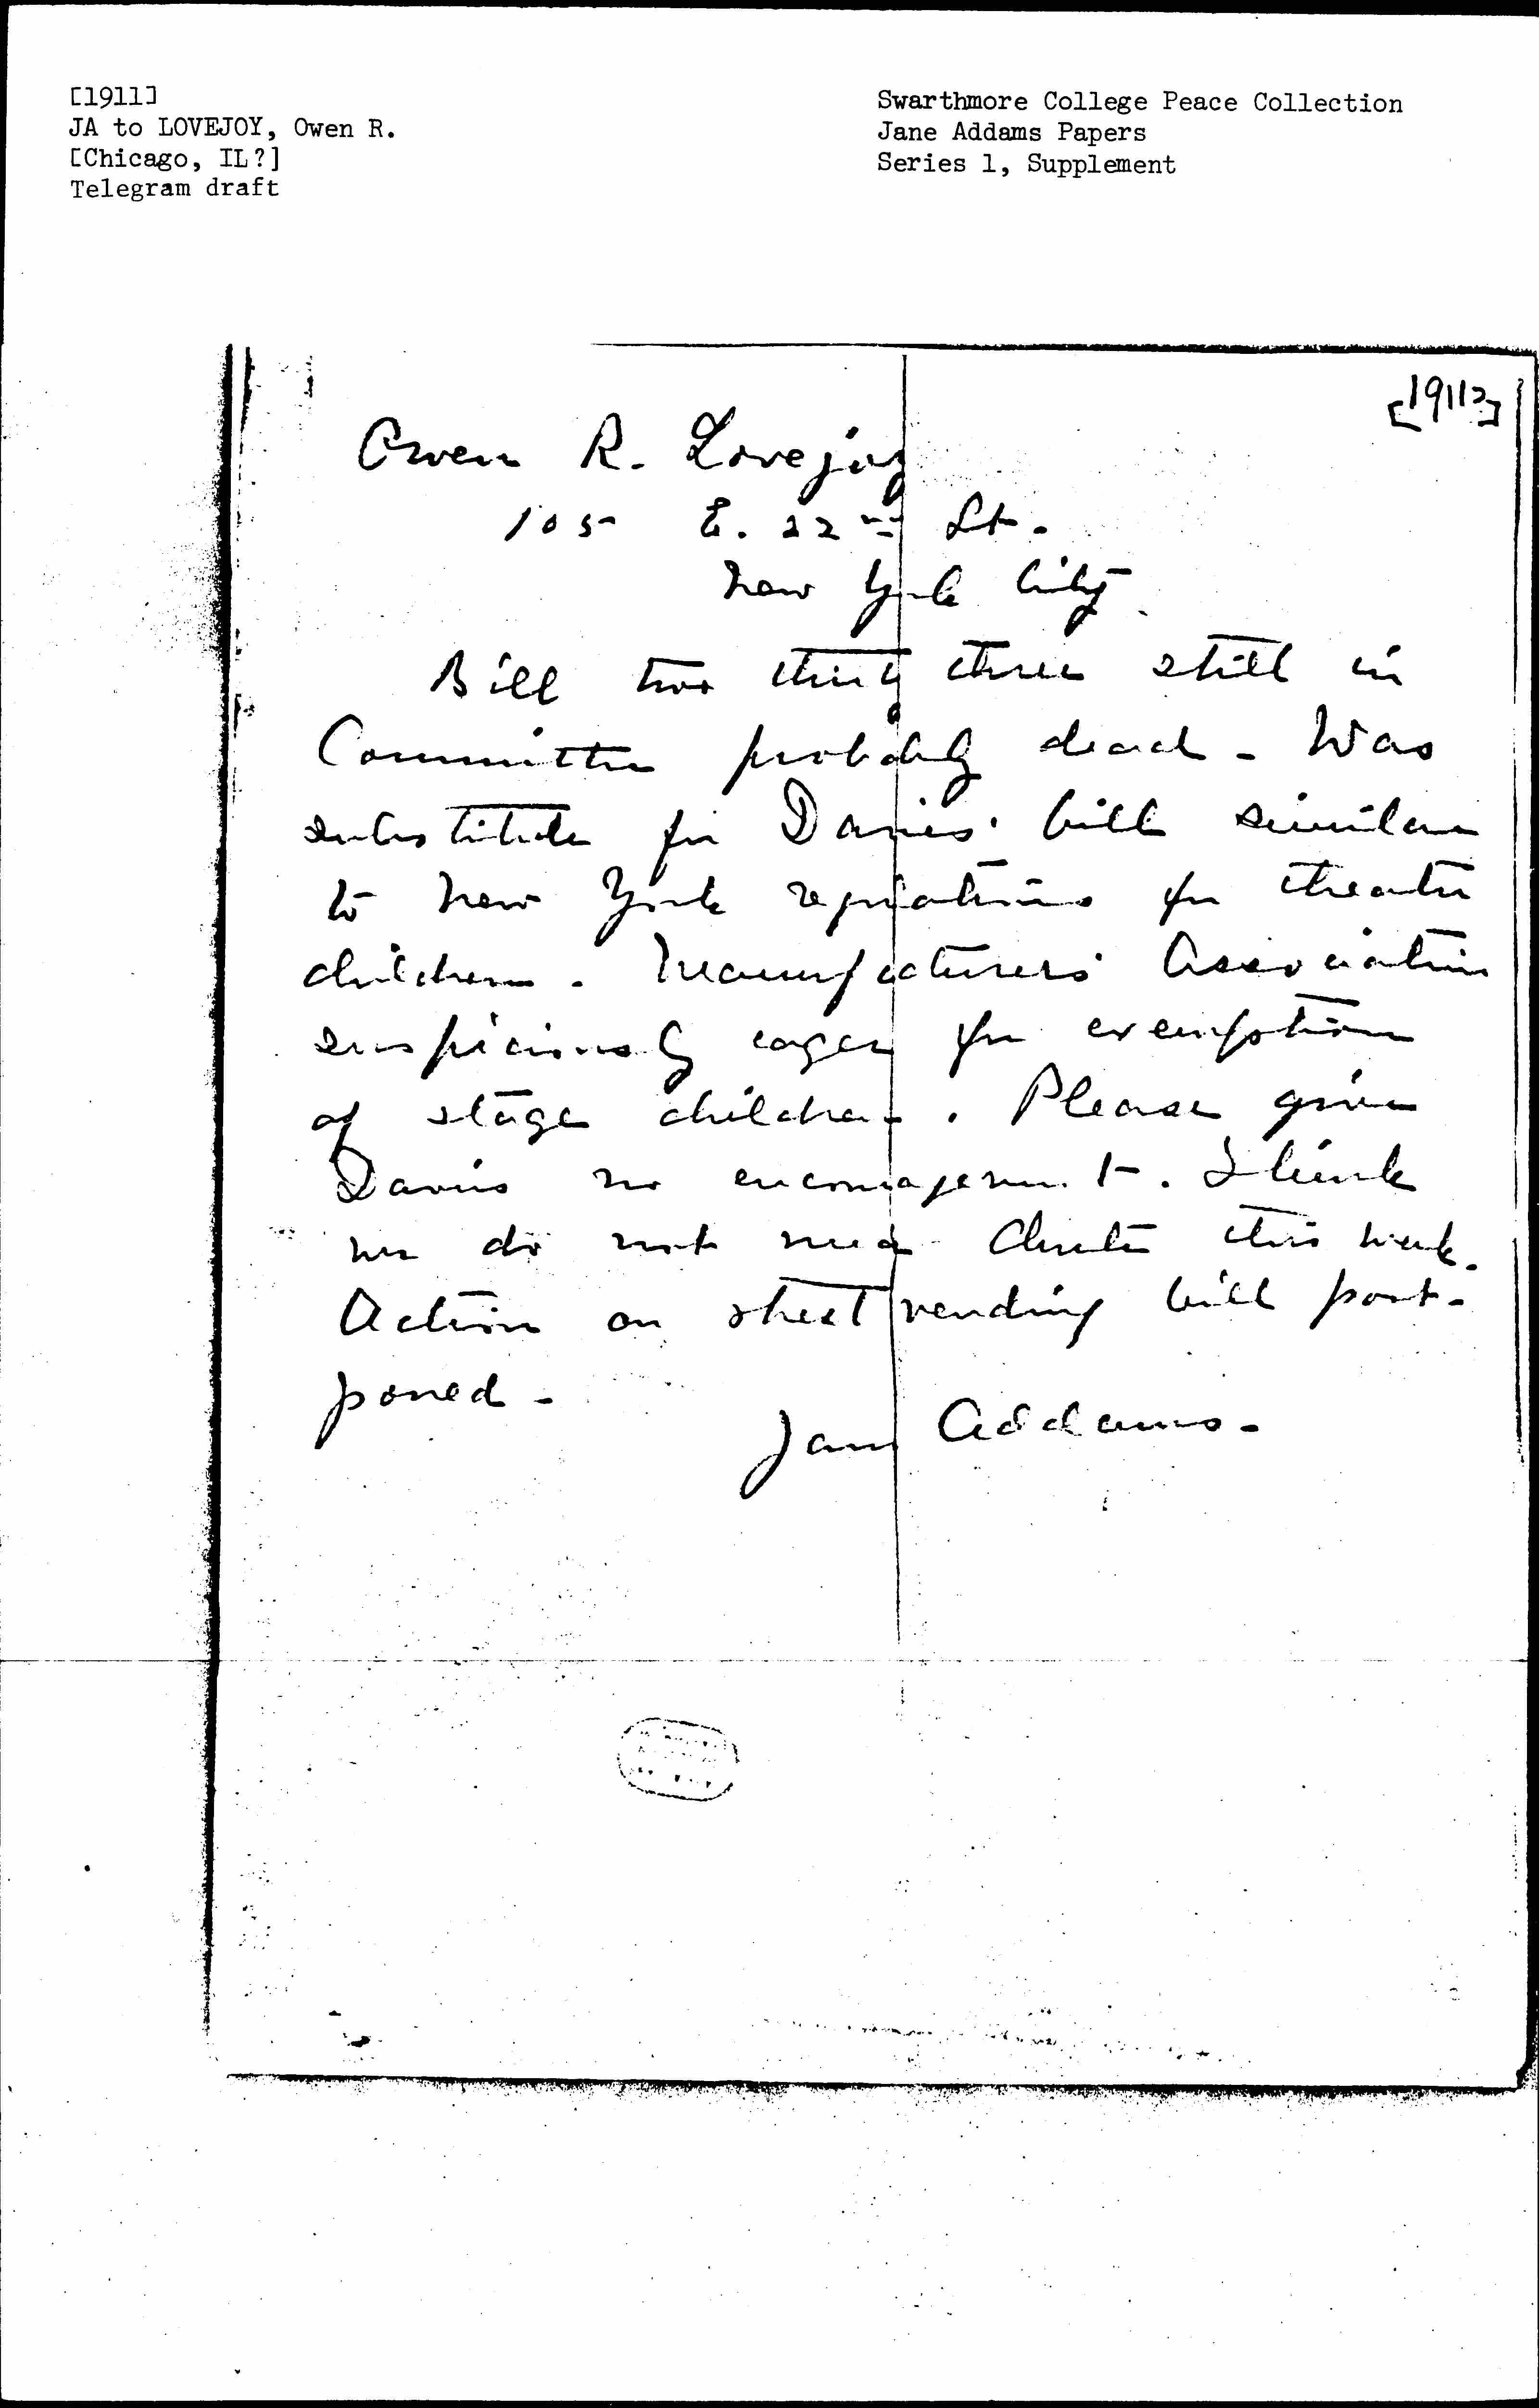 [1911]
JA to LOVEJOY, Owen R.
[Chicago, IL?]
Telegram draft
Swarthmore College Peace Collection
Jane Addams Papers
Series 1, Supplement
[1911?]
Owen R. Lovejoy
105 E. 22nd St.
New York City
Bill two thirty three still in
Committee probably dead - Was
substitute for Davies' bill similar
to New York regulations for theatre
children. Manufacturers' Association
suspiciously eager for exemption
of stage children. Please give
Davies no encouragement. Think
we do not need this week.
Action on street vending bill post-
poned -
Jane Addams -